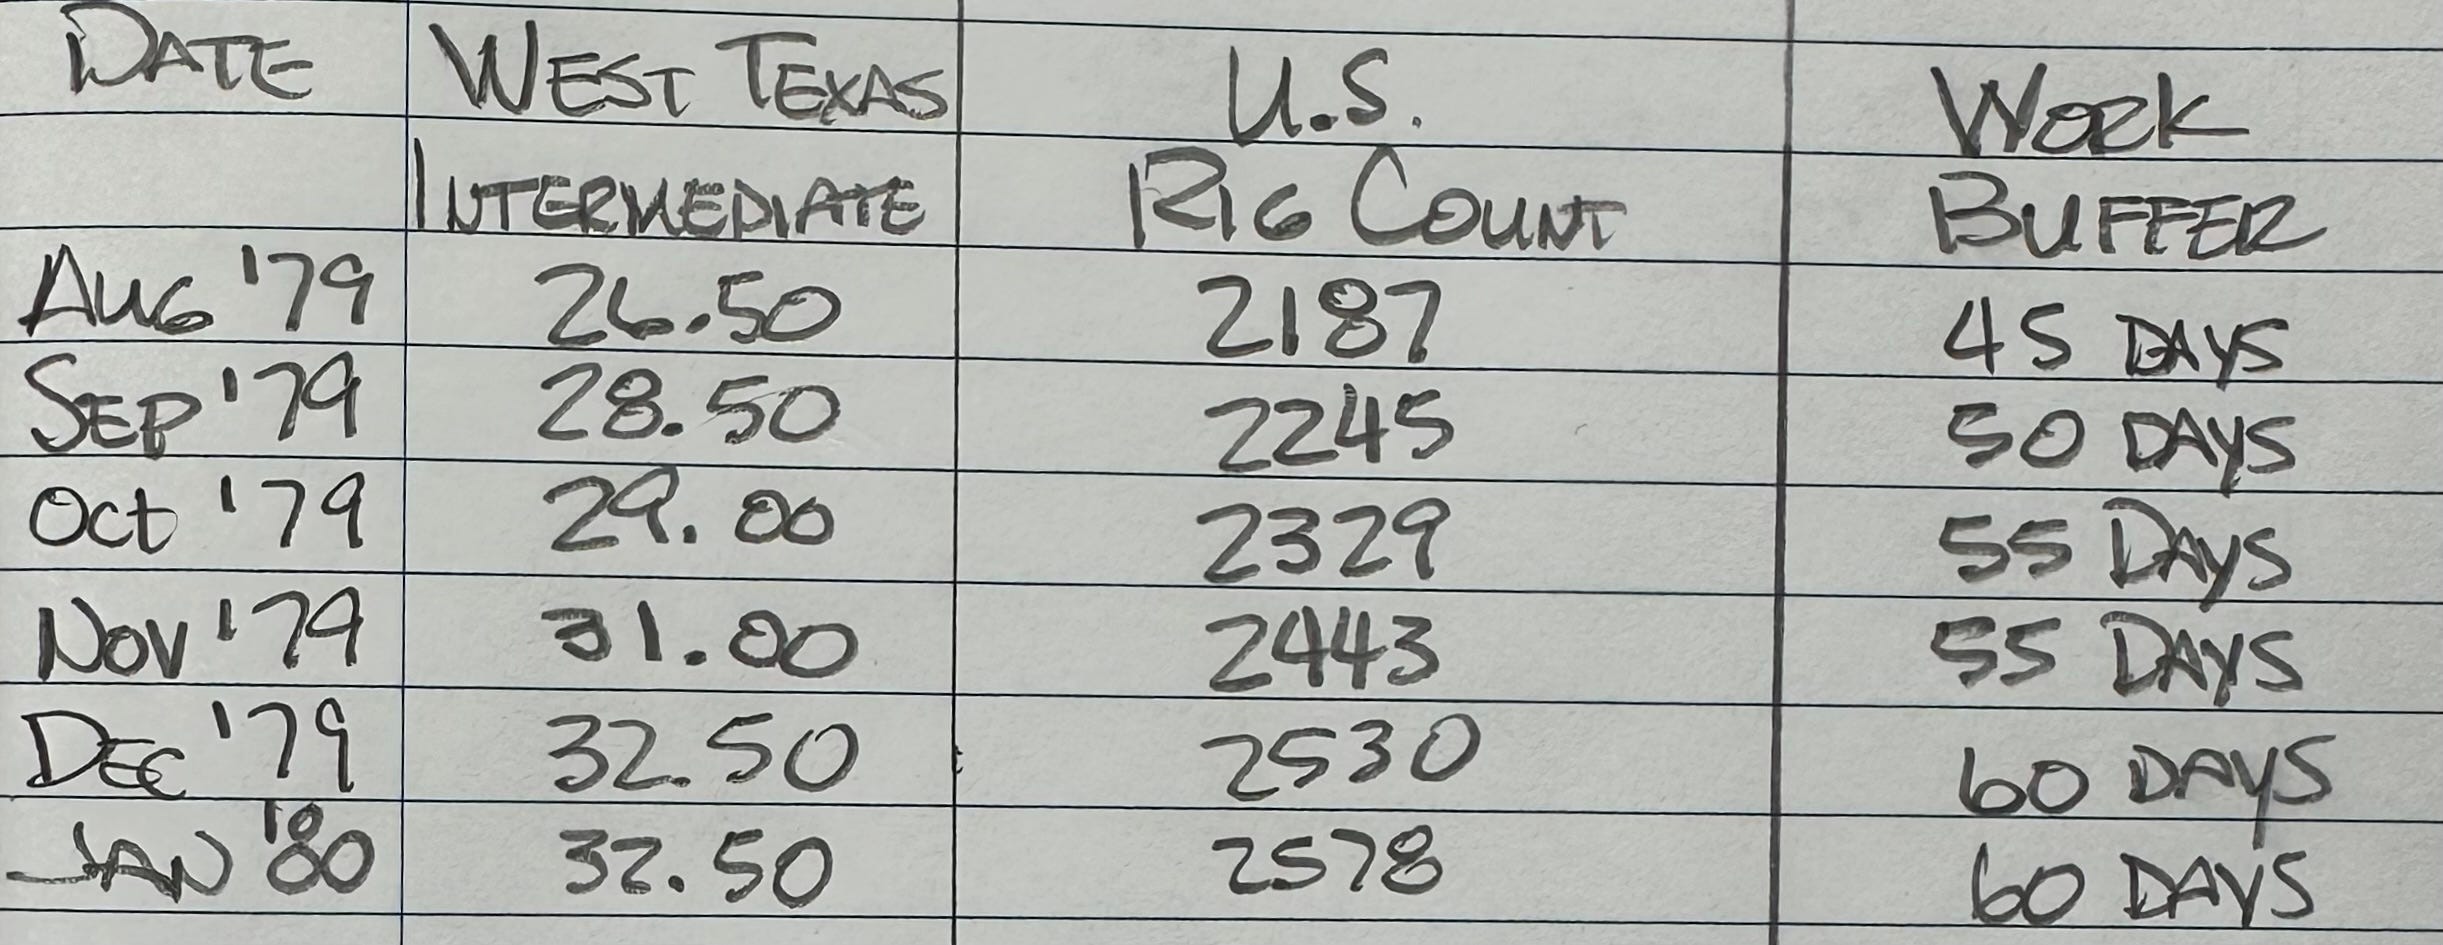 DATE WEST TEXAS U.S. WORK
INTERMEDIATE RIG COUNT BUFFER
AUG '79 26.50 2187 45 DAYS
SEP '79 28.50 2245 50 DAYS
OCT '79 29.00 2329 55 DAYS
NOV '79 31.00 2443 55 DAYS
DEC '79 32.50 2530 60 DAYS
JAN '80 32.50 2578 60 DAYS